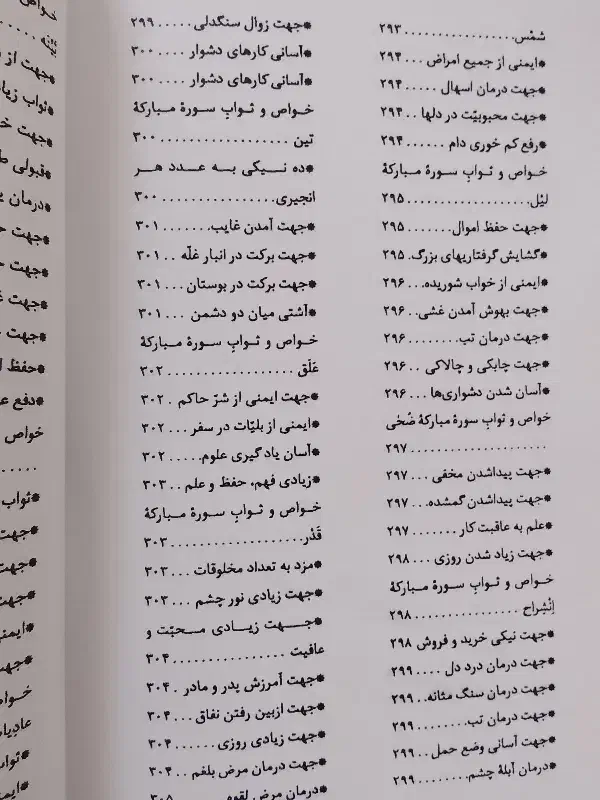 شمْس................. ۲۹۳
*ایمنی از جمیع امراض ... ۲۹۴
*جهت درمان اسهال ..... ۲۹۴
*جهت محبوبیّت در دلها .. ۲۹۴
*رفع کم خوری دام ...... ۲۹۴
خـواص و ثـوابِ سـورهٔ مبـارکهٔ
لیْل.................. ۲۹۵
*جهت حفظ اموال ....... ۲۹۵
*گشایش گرفتاریهای بزرگ. ۲۹۵
*ایمنی از خواب شوریده... ۲۹۶
*جهت بهوش آمدن غشی.. ۲۹۶
*جهت درمان تب......... ۲۹۶
*جهت چابکی و چالاکی .. ۲۹۶
*آسان شدن دشواری‌ها ... ۲۹۶
خواص و ثوابِ سورهٔ مبارکهٔ ضُحٰی
.................... ۲۹۷
*جهت پیداشدن مخفی ... ۲۹۷
*جهت پیداشدن گمشده... ۲۹۷
*علم به عاقبت کار ....... ۲۹۷
*جهت زیاد شدن روزی ... ۲۹۸
خـواص و ثـوابِ سـورهٔ مبـارکهٔ
اِنْشِراح ............... ۲۹۸
*جهت نیکی خرید و فروش ۲۹۸
*جهت درمان درد دل .... ۲۹۹
*جهت درمان سنگ مثانه.. ۲۹۹
*جهت درمان تب........ ۲۹۹
*جهت آسانی وضع حمل .. ۲۹۹
*درمان آبلهٔ چشم........ ۲۹۹
*جهت زوال سنگدلی ..... ۲۹۹
*آسانی کارهای دشوار ... ۳۰۰
*آسانی کارهای دشوار ... ۳۰۰
خـواص و ثـوابِ سـورهٔ مبـارکهٔ
تین .................. ۳۰۰
*ده نـیـکی بـه عـدد هـر
انجیری................ ۳۰۰
*جهت آمدن غایب....... ۳۰۱
*جهت برکت در انبار غلّه .. ۳۰۱
*جهت برکت در بوستان... ۳۰۱
*آشتی میان دو دشمن ... ۳۰۱
خـواص و ثـوابِ سـورهٔ مبـارکهٔ
عَلَق .................. ۳۰۲
*جهت ایمنی از شرّ حاکم . ۳۰۲
*ایمنی از بلیّات در سفر ... ۳۰۲
*آسان یادگیری علوم..... ۳۰۲
*زیادی فهم، حفظ و علم .. ۳۰۳
خـواص و ثـوابِ سـورهٔ مبـارکهٔ
قَدْر................... ۳۰۳
*مزد به تعداد مخلوقات ... ۳۰۳
*جهت زیادی نور چشم ... ۳۰۳
*جـهـت زیـادی مـحبّت و
عافیت ................ ۳۰۴
*جهت آمرزش پدر و مادر . ۳۰۴
*جهت ازبین رفتن نفاق... ۳۰۴
*جهت زیادی روزی ..... ۳۰۴
*جهت درمان مرض بلغم .. ۳۰۴
*درمان مرض لقوه
خواص
*جهت از
*ثواب زیا
*جهت خـ
*قبولی ط
*درمان
*جهت
*جهت
*جهت
*جهت
*حفظ
*دفع
خواص
.....
*ثواب
*جهت
*جهت
*جهت
*ایمنی
*جهت
خـواص
عادیات
*ثواب
*ایمنی